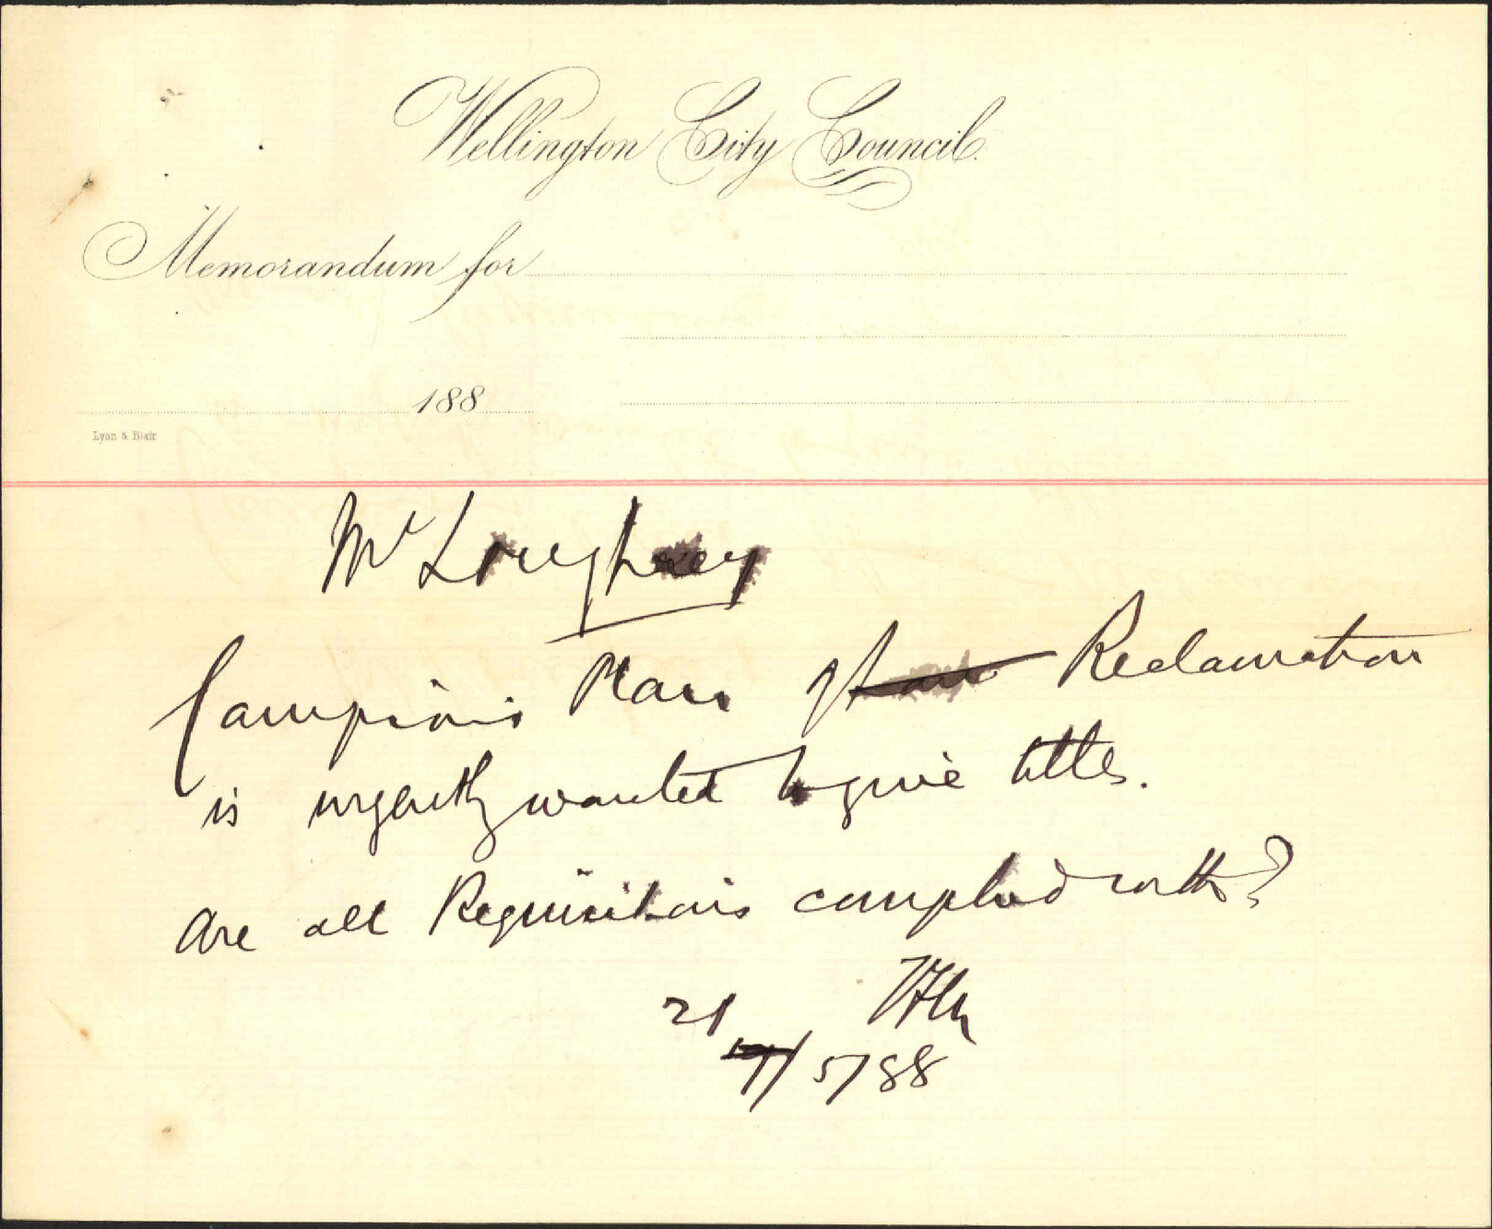 Wellington City Council.
Memorandum for
188
Lyon & Blair
Mr Loughrey
Campion's Plan of Reclamation
is urgently wanted to give titles.
Are all Requisitions complied with?
21
17/5/88